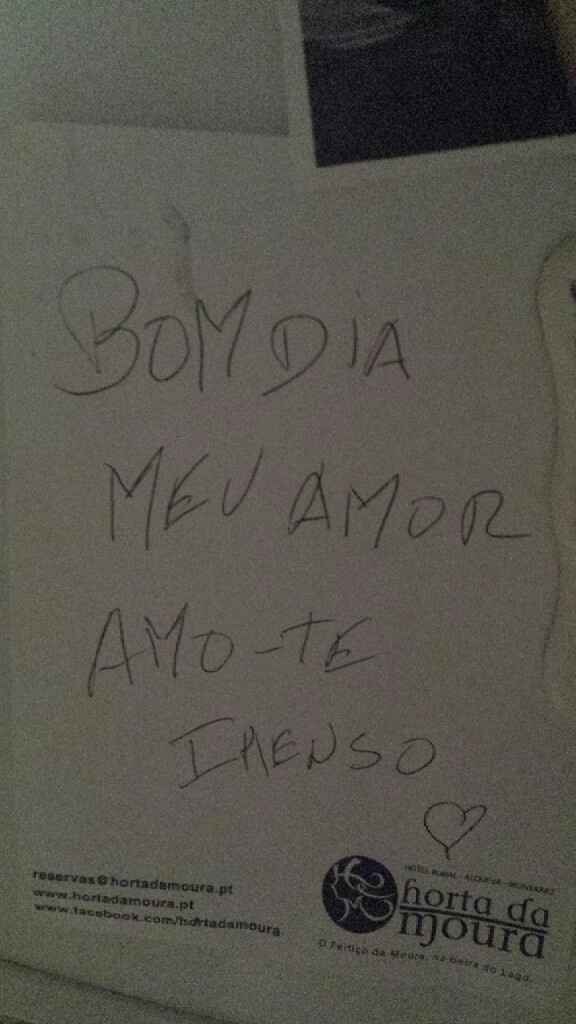 BOM DIA
MEU AMOR
AMO-TE
IMENSO
reservas@hortadamoura.pt
www.hortadamoura.pt
www.facebook.com/hortadamoura
HOTEL RURAL - ALQUEVA - MONSARAZ
horta da
moura
O Feitiço da Moura, na Beira do Lago.